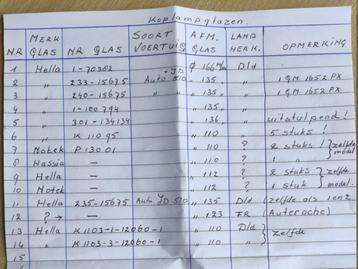 Koplampglazen.
NR MERK GLAS NR GLAS SOORT VOERTUIG AFM. GLAS LAND HERK. OPMERKING
1 Hella 1-70302 φ 166 m/m Dld
2 „ 233-15675 Auto JD 510 „ 135 „ „ 1 GM 1652 PX
3 „ 240-15675 „ „ „ 135 „ „ 1 GM 1652 PX
4 „ 1-100794 „ 135 „
5 „ 301-134134 „ 136 „ „ uitstulpend!
6 „ K 110 95 „ 110 „ 5 stuks!
7 Notek P 13001 „ 110 ? 2 stuks! } zelfde model
8 Hassia — „ 110 ? 1 „
9 Hella — „ 112 ? 2 stuks } zelfde model.
10 Notek — „ 112 ? 1 stuk
11 Hella 235-15675 Auto JD 510 „ 135 Dld (zelfde als 1 en 2
12 ? → — „ 123 FR (Auteroche)
13 Hella K 1103-1-12060-1 „ 110 Dld } zelfde
14 „ K 1103-3-12060-1 „ 110 „
15